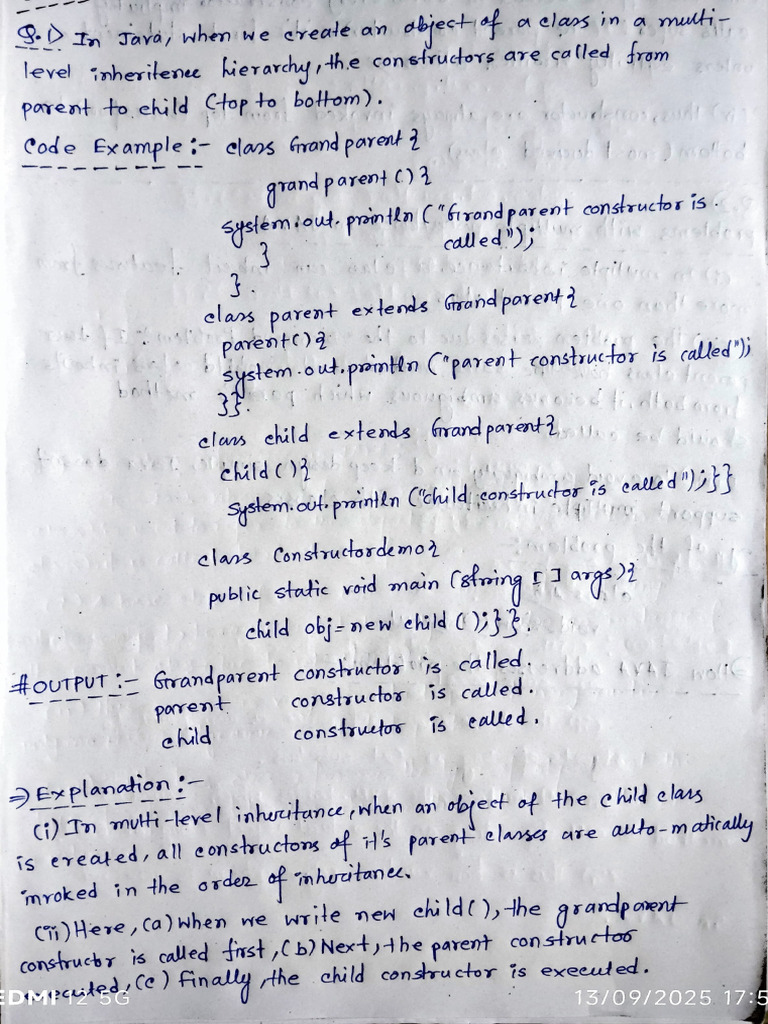 Q.1) In Java, when we create an object of a class in a multi-
level inheritence hierarchy, the constructors are called from
parent to child (top to bottom).
Code Example :- class Grandparent {
grandparent () {
system.out.println ("Grandparent constructor is
called");
}
}.
class parent extends Grandparent {
parent() {
system.out.println ("parent constructor is called");
}}.
class child extends Grandparent {
child () {
system.out.println ("child constructor is called");}}
class Constructordemo {
public static void main (string [ ] args) {
child obj = new child ();}}.
# OUTPUT :- Grandparent constructor is called.
parent constructor is called.
child constructor is called.
⇒ Explanation :-
(i) In multi-level inheritance, when an object of the child class
is created, all constructors of it's parent classes are auto-matically
invoked in the order of inheritance.
(ii) Here, (a) when we write new child(), the grandparent
constructor is called first, (b) Next, the parent constructor
executed, (c) Finally, the child constructor is executed.
EDMI 12 5G
13/09/2025 17:5